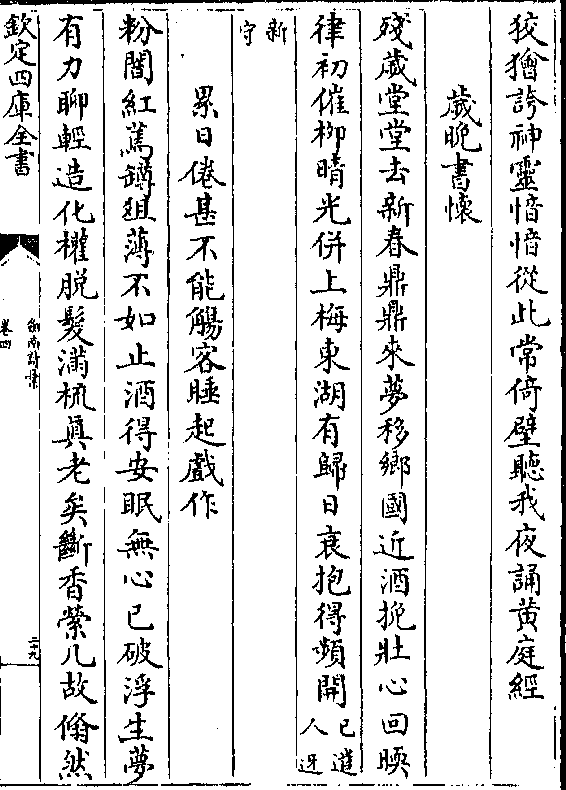 狡獪誇神靈愔愔從此常倚壁聽我夜誦黄庭經
歲晚書懷
殘歲堂堂去新春鼎鼎來夢移鄉國近酒挽壯心回㬉
律初催栁晴光併上梅東湖有歸日衰抱得頻開已遣人迓
新守
累日倦甚不能觴客睡起戲作
粉闇紅蔫罇俎薄不如止酒得安眠無心已破浮生夢
有力聊輕造化權脱髮滿梳眞老矣斷香縈几故翛然
欽定四庫全書
劒南詩藁
卷四
二十九